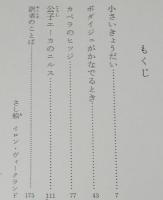 もくじ
小さいきょうだい 7
ボダイジュがかなでるとき 43
カペラのヒツジ 77
公子エーカのニルス 111
訳者のことば 175
さし絵 イロン・ヴィークランド